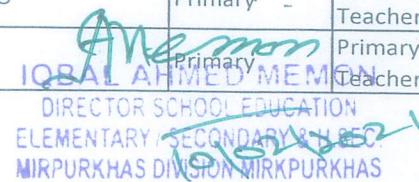 Primary -
Teacher
Memon
Primary
Primary
Teacher
IQBAL AHMED MEMON
DIRECTOR SCHOOL EDUCATION
ELEMENTARY / SECONDARY & H.SEC.
MIRPURKHAS DIVISION MIRKPURKHAS